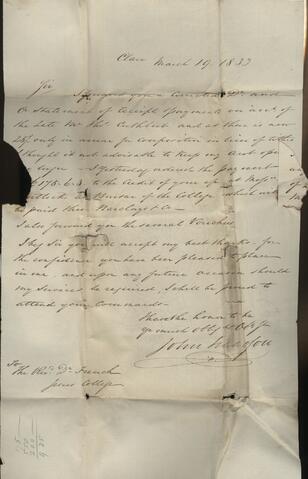 Clare March 19, 1833
Sir
I forward you a
or Statement of receipts & payments on acct of
the Late Mr Thos. Cuthbert and as there is now
only in arrear for Composition in lieu of tithes
thought it not advisable to keep my acct open
longer I yesterday ordered the payment
to the Credit of you
Bursar of the College which will
be paid thro' Barclay & Co.
I also forward you the several Vouchers
I beg Sir you will accept my best thanks for
the confidence you have been pleased to place
in me, and upon any future occasion should
my Services be required, I shall be proud to
attend your Commands.
I have the honor to be
yr much Oblig'd
John
To
The Revd. Dr. French
Jesus College